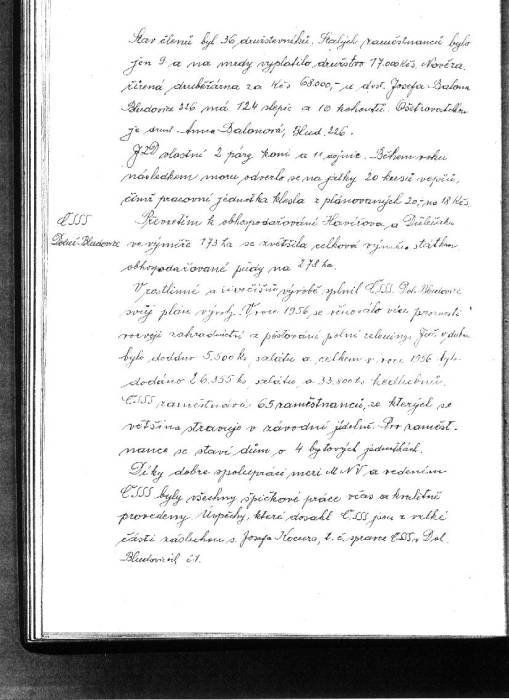 Stav členů byl 36 družstevníků. Stálých zaměstnanců bylo
jen 9 a na mzdy vyplatilo družstvo 17.000 Kčs. Nově za-
řízená drůbežárna za Kčs 68.000,- u druž. Josefa Balona
Bludovice 226 má 124 slepic a 10 kohoutů. Ošetrovatelkou
je druž. Anna Balonová, Blud. 226.
JZD vlastní 2 páry koní a 11 dojnic. Během roku
následkem moru odvezlo se na jatky 20 kusů vepřů,
čímž pracovní jednotka klesla z plánovaných 20,- na 18 Kčs.
ČSSS
Dolní-Bludovice
Převzetím k obhospodařování Havířova a
ve výměře 173 ha se zvětšila celková výměra statkem
obhospodařované půdy na 278 ha.
V rostlinné a živočišné výrobě splnil ČSSS Dol. Bludovice
svůj plán výroby. V roce 1956 se věnovalo více pozornosti
rozvoji zahradnictví a pěstování polní zeleniny. Již v dubnu
bylo dodáno 5.500 ks salátu a celkem v roce 1956 bylo
dodáno 26.355 ks salátu a 33.800 ks kedlubnů.
ČSSS zaměstnává 65 zaměstnanců, ze kterých se
většina stravuje v závodní jídelně. Pro zaměst-
nance se staví dům o 4 bytových jednotkách.
Díky dobré spolupráci mezi MNV a vedením
ČSSS byly všechny špičkové práce včas a kvalitně
provedeny. Úspěchy, které dosáhl ČSSS jsou z velké
části zásluhou s. Josefa Kocura, t. č. správce ČSSS v Dol.
Bludovicích č. 1.